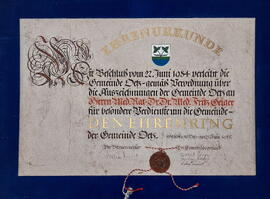 EHRENURKUNDE
Mit Beschluß vom 27. Juni 1984 verleiht die
Gemeinde Oetz gemäß Verordnung über
die Auszeichnungen der Gemeinde Oetz an
Herrn Med. Rat. Dr. Dr. Med. Fritz Geiger
für besondere Verdienste um die Gemeinde
DEN EHRENRING
der Gemeinde Oetz.